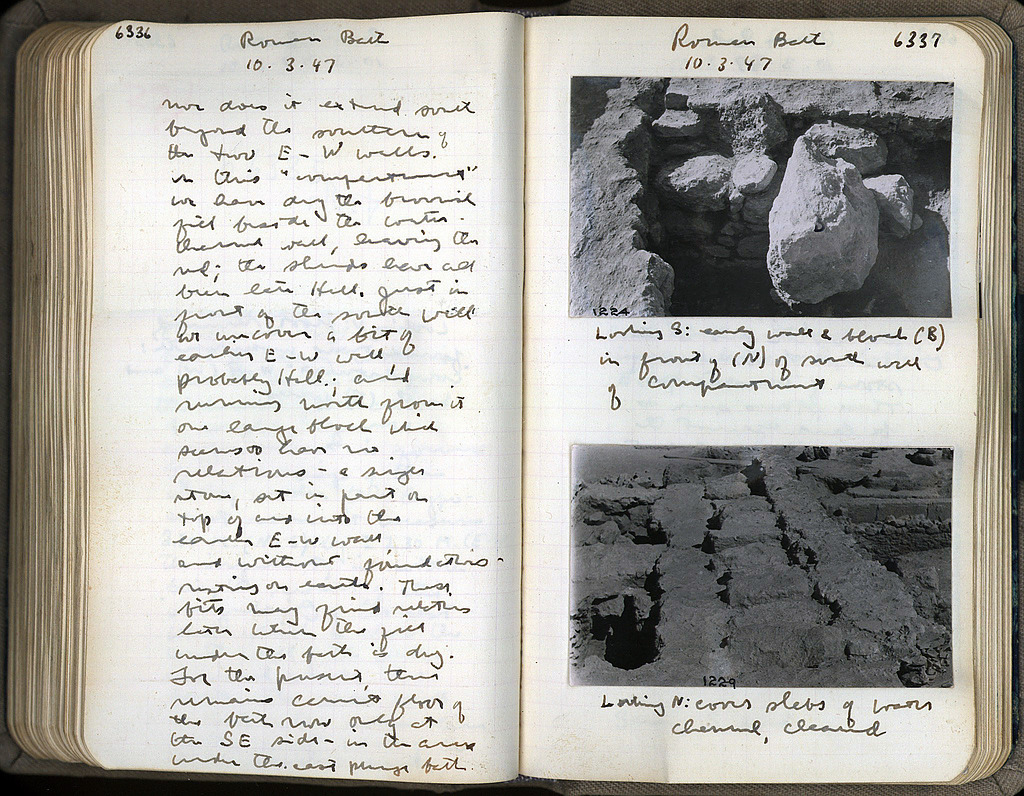 6336
Roman Bath
10.3.47
nor does it extend south
beyond the southern of
the two E-W walls.
in this "compartment"
we have dug the brownish
fill beside the water-
channel wall, leaving the
red; the sherds have all
been late Hell. Just in
front of the south wall
we uncover a bit of
earlier E-W wall
probably Hell.; and
running north from it
one large block which
seems to have no
relations - a single
stone, set in part on
top of and into the
earlier E-W wall
and without foundations -
resting on earth. These
bits may find relations
later when the fill
under the bath is dug.
For the present, there
remains cement floor of
the bath now only at
the SE side - in the area
under the east plunge bath.
Roman Bath
6337
10.3.47
1224
B
Looking S: early wall & block (B)
in front of (N) of south wall
of compartment
1229
Looking N: cover slabs of water
channel, cleaned